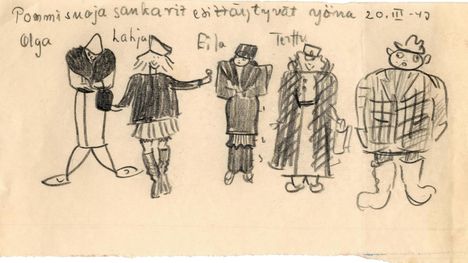 Pommisuoja sankarit esittäytyvät yönä 20.III -43
Olga Lahja Eila Terttu